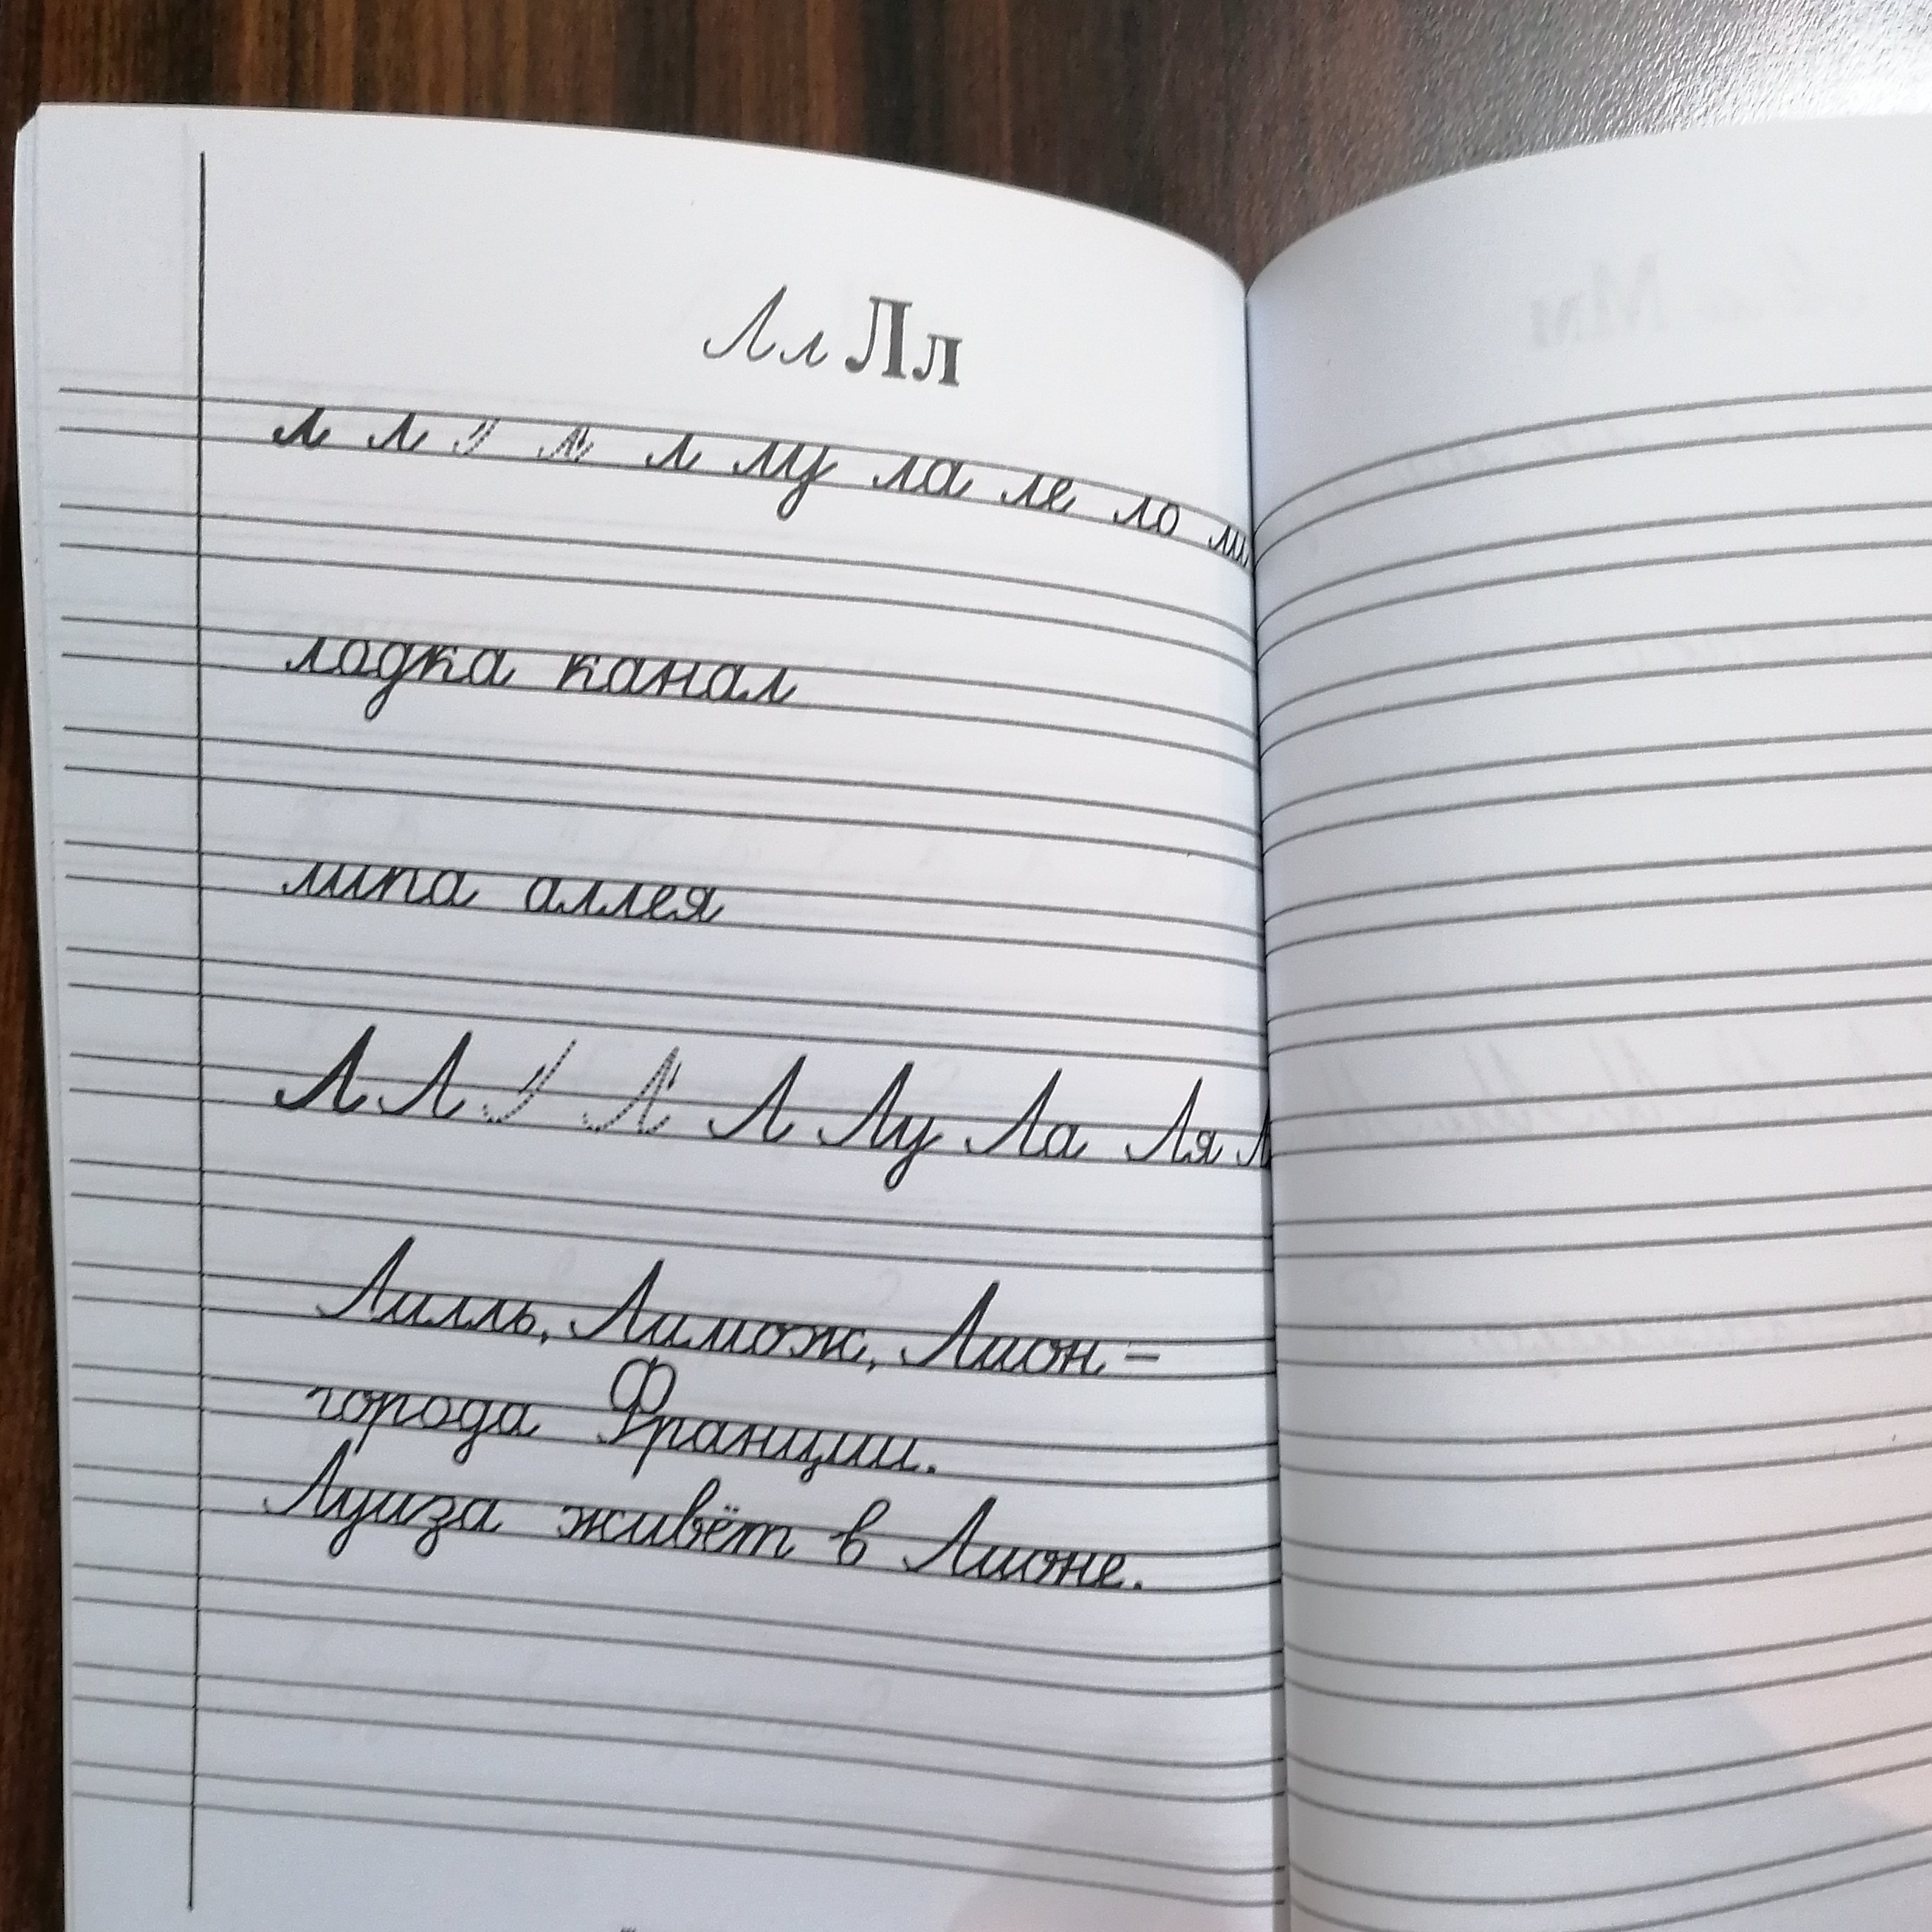 Лл Лл
л л л л лу ла ле ло
лодка канал
липа аллея
Л Л Л Л Лу Ла Ля
Лилль, Лимож, Лион –
города Франции.
Луиза живёт в Лионе.